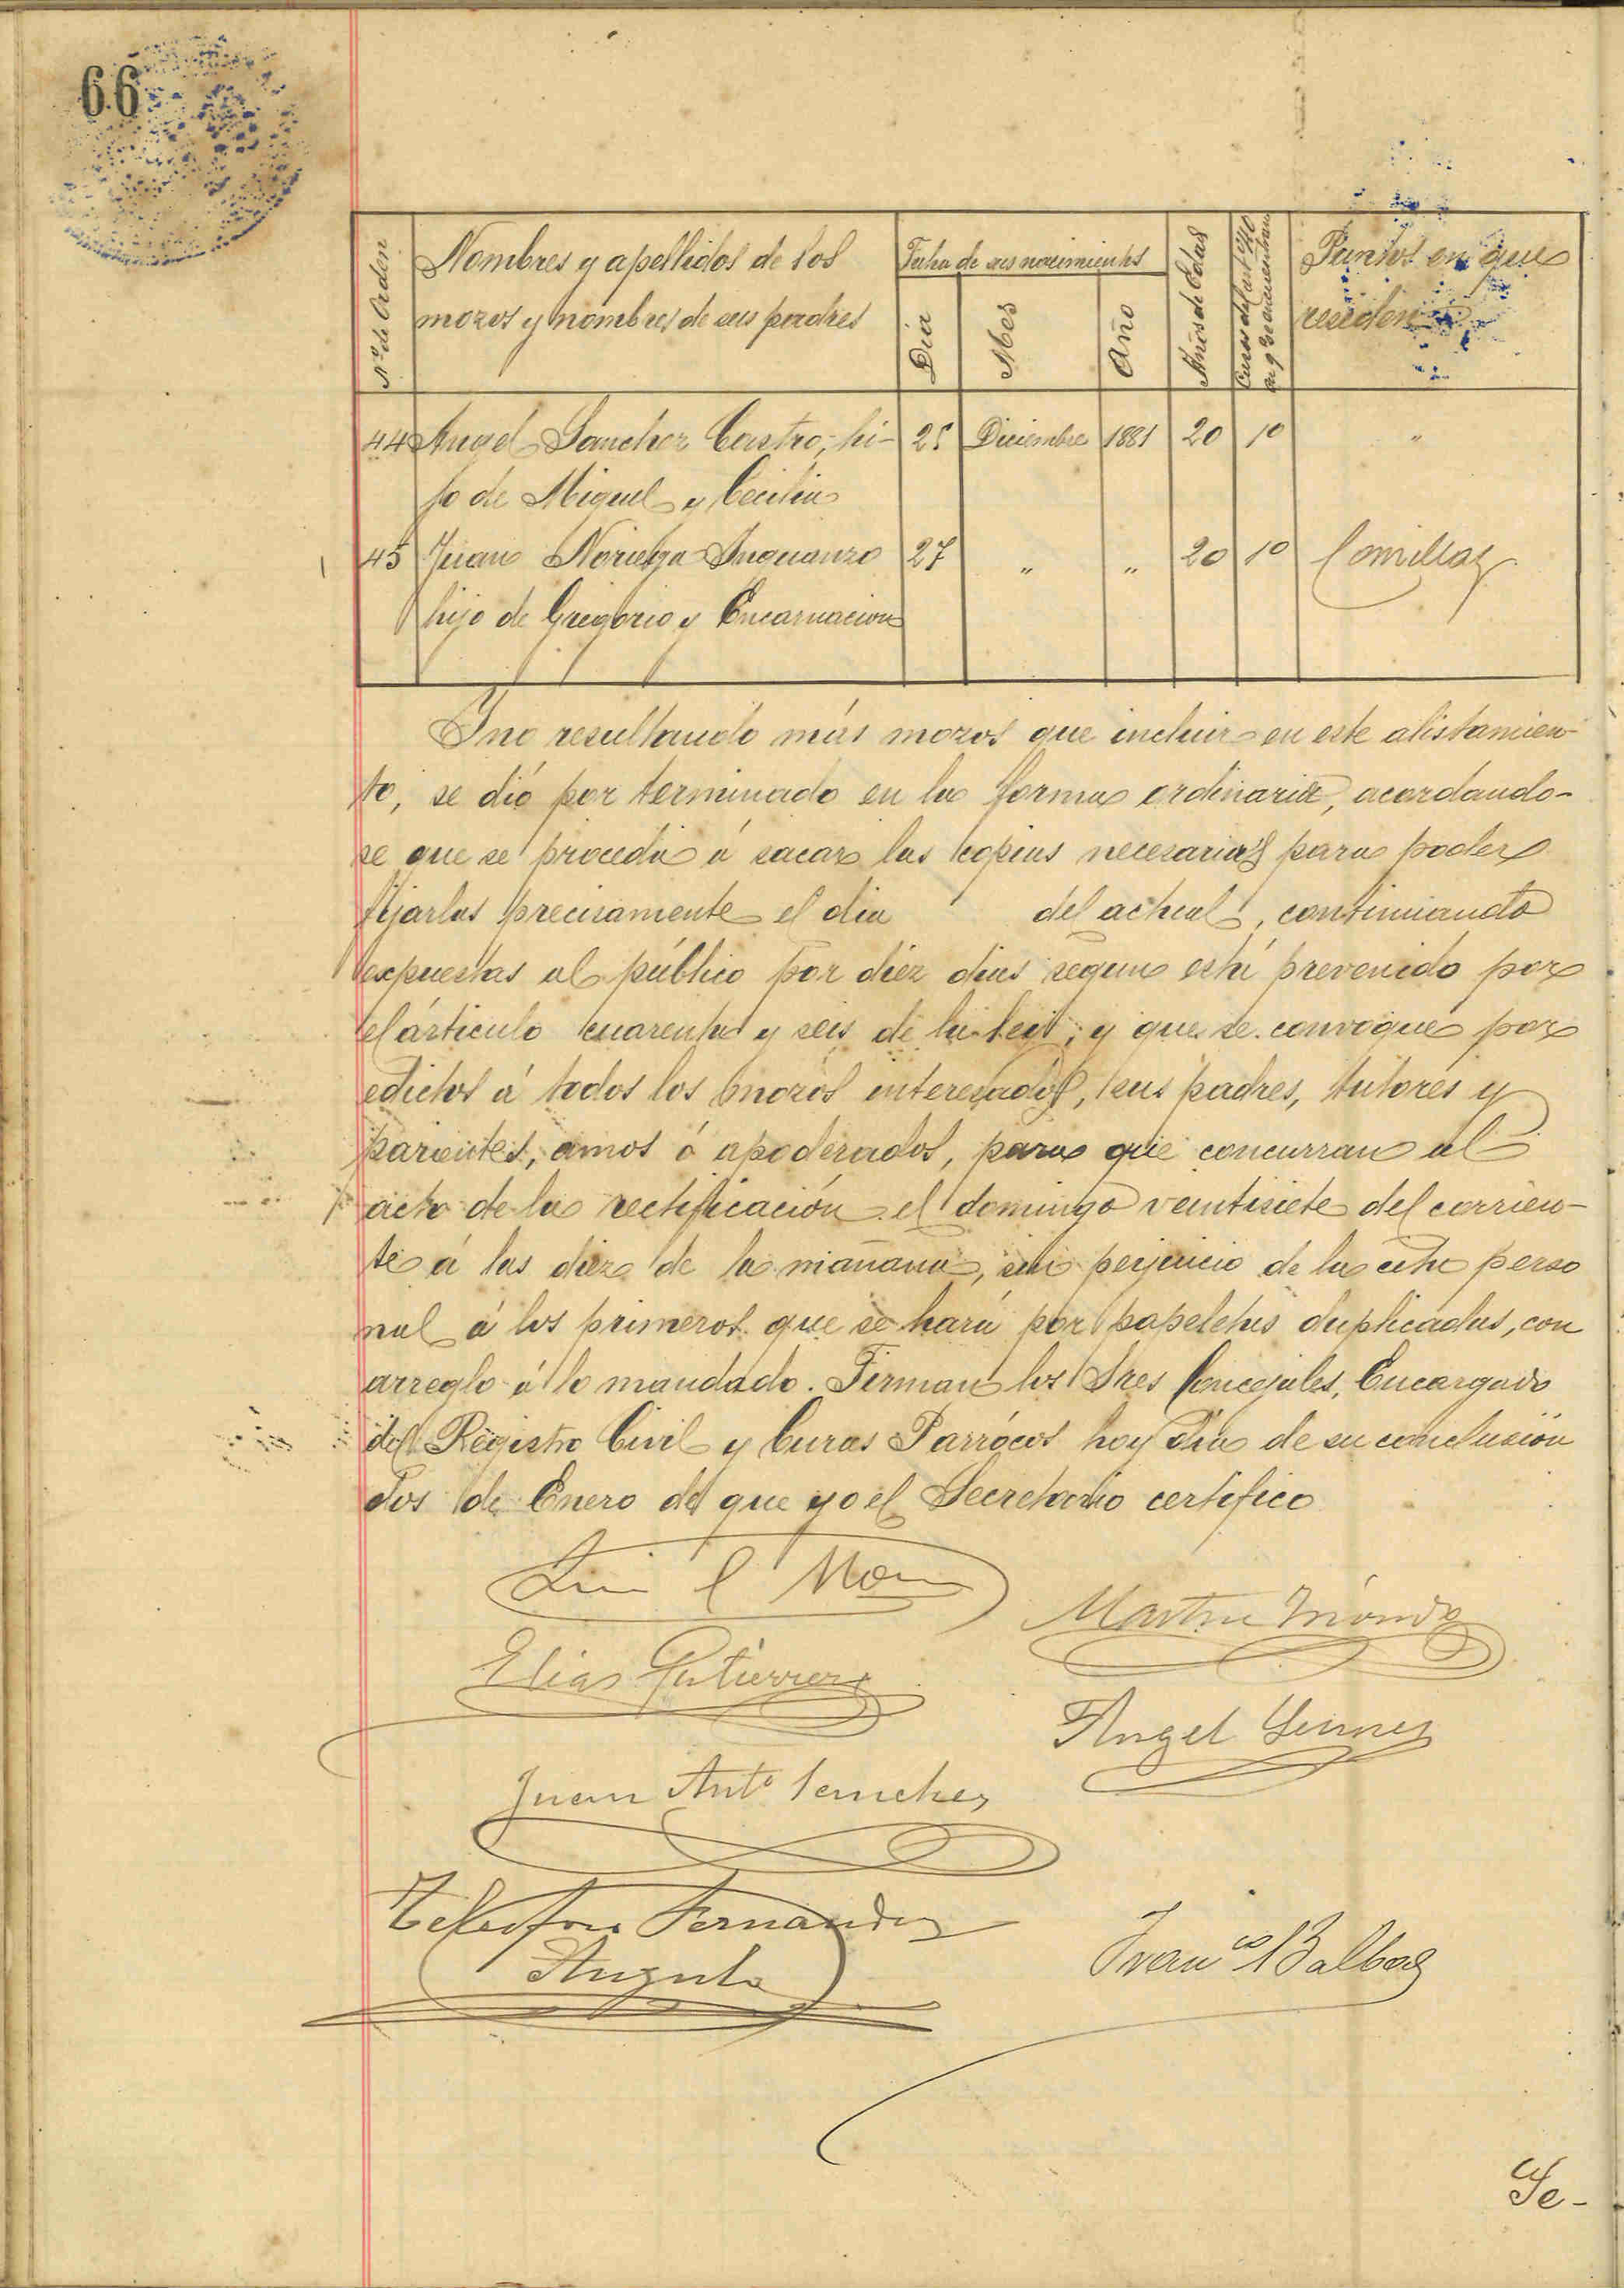 66
Nº de Orden
Nombres y apellidos de los
mozos y nombres de sus padres
Fecha de sus nacimientos
Dia
Mes
Año
Años de Edad
Casos del art. 40
en q. se encuentran
Puntos en que
residen
44 Angel Sanchez Castro, hi- 25 Diciembre 1881 20 10 "
jo de Miguel y Cecilia
45 Juan Noriega Inguanzo 27 " " 20 10 Comillas
hijo de Gregorio y Encarnacion
Y no resultando más mozos que incluir en este alistamien-
to, se dió por terminado en la forma ordinaria, acordando-
se que se proceda á sacar las copias necesarias para poder
fijarlas precisamente el dia del actual, continuando
expuestas al público por diez dias segun está prevenido por
el árticulo cuarenta y seis de la ley; y que se convoque por
edictos á todos los mozos interesados, sus padres, tutores y
parientes, amos ó apoderados, para que concurran al
acto de la rectificación el domingo veintisiete del corrien-
te á las diez de la mañana, sin perjuicio de la cita perso
nal á los primeros que se hará por papeletas duplicadas, con
arreglo á lo mandado. Firman los Sres Concejales, Encargado
del Registro Civil y Curas Parrócos hoy dia de su conclusión
dos de Enero de que yo el Secretario certifico
Martin
Elias Gutierrez
Angel
Juan Antº Sanchez
Telesforo Fernandez
Angulo
Franco Balbas
Se-